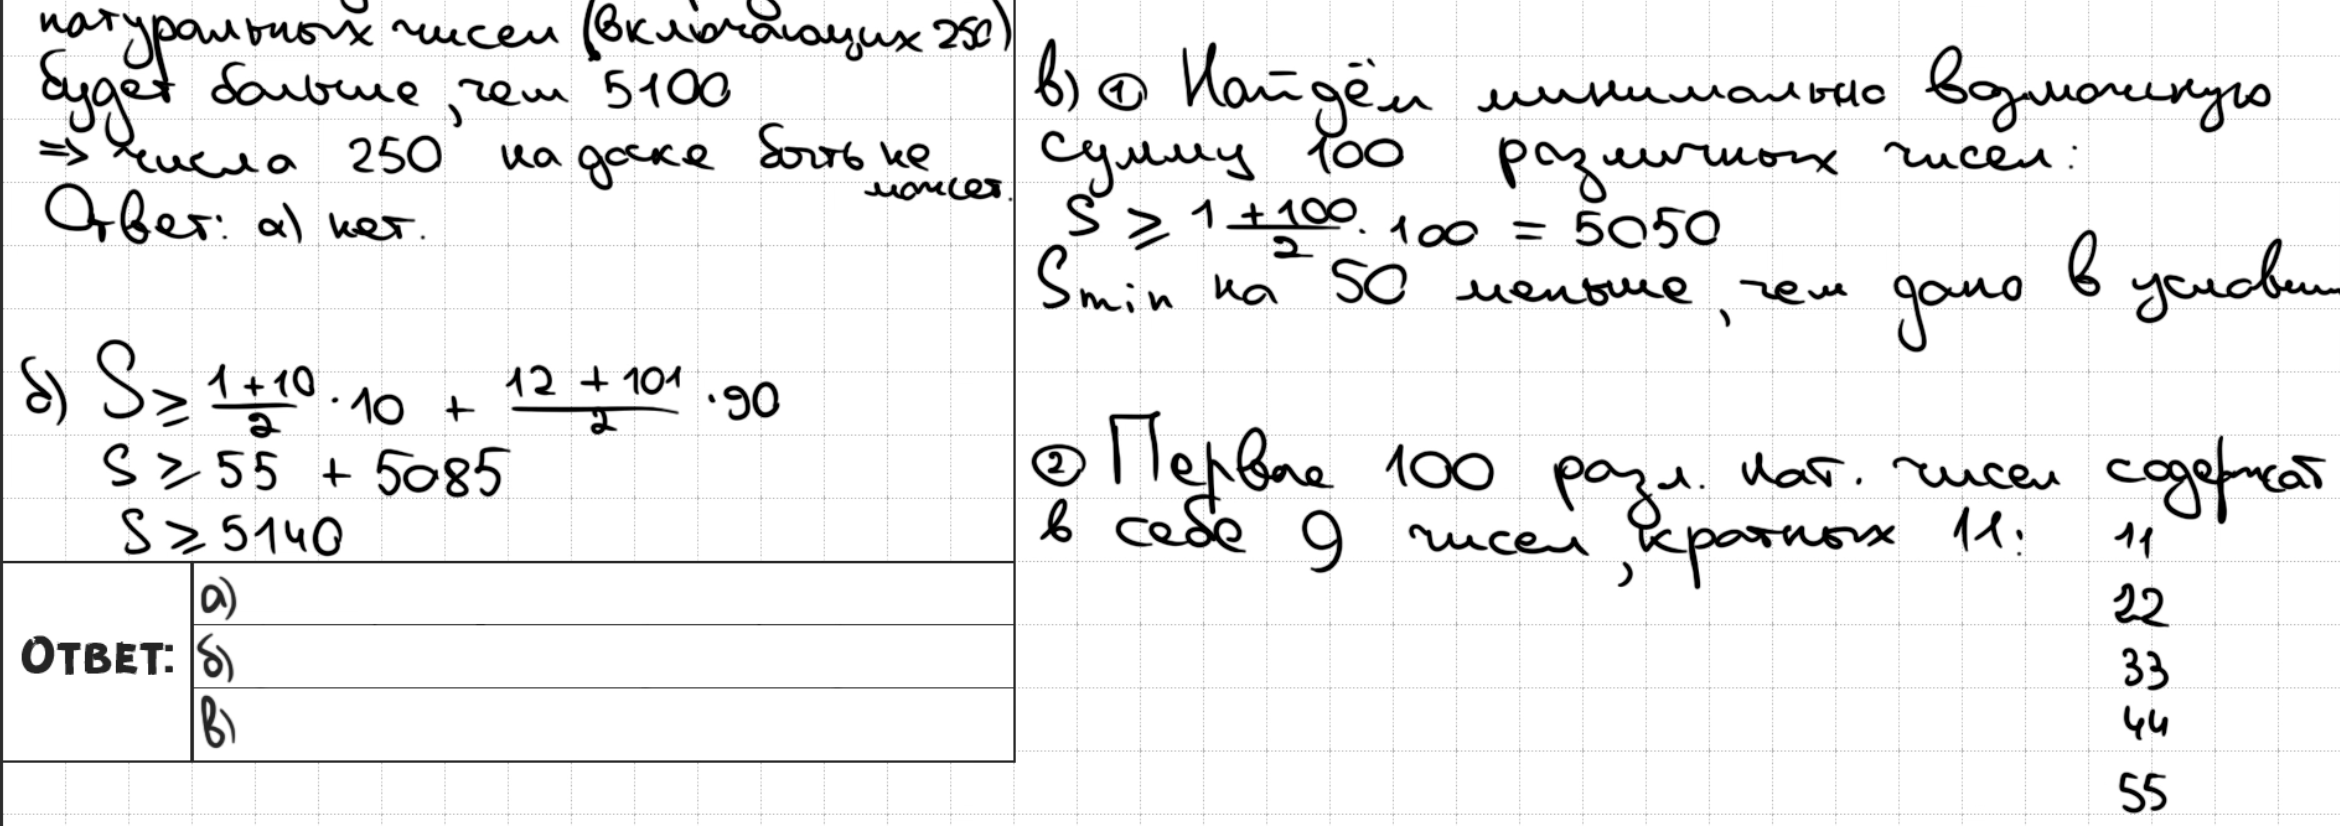 натуральных чисел (включающих 250)
будет больше, чем 5100
=> числа 250 на доске быть не
может.
Ответ: а) нет.
б) S ⩾ (1+10)/2 · 10 + (12+101)/2 · 90
S ⩾ 55 + 5085
S ⩾ 5140
ОТВЕТ:
а)
б)
в)
в) ① Найдём минимально возможную
сумму 100 различных чисел:
S ⩾ (1+100)/2 · 100 = 5050
Smin на 50 меньше, чем дано в условии
② Первые 100 разл. нат. чисел содержат
в себе 9 чисел, кратных 11: 11
22
33
44
55